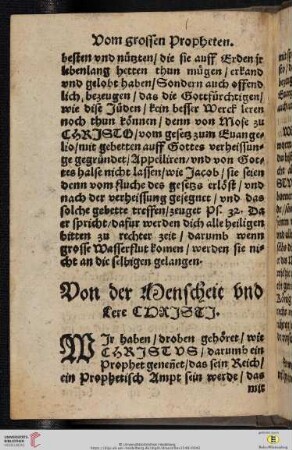 Vom grossen Propheten.
besten vnd nützten / die sie auff Erden jr
lebenlang hetten thun mügen / erkand
vnd gelobt haben / Sondern auch offend
lich, bezeugen / das die Gottfürchtigen /
wie dise Jüden / kein besser Werck leren
noch thun können / denn von Mose zu
CHRISTO / vom gesetz zum Euange-
lio / mit gebetten auff Gottes verheissun-
ge gegründet / Appelliren / vnd von Got-
tes halse nicht lassen / wie Jacob / sie seien
denn vom fluche des gesetzs erlöst / vnd
nach der verheissung gesegnet / vnd das
solche gebette treffen / zeuget Ps. 32. Da
er spricht / dafur werden dich alle heiligen
bitten zu rechter zeit / darumb wenn
grosse Wasserflut komen / werden sie ni-
cht an die selbigen gelangen.
Von der Menscheit vnd
Lere CHRISTI.
WIr haben / droben gehöret / wie
CHRISTVS / darumb ein
Prophet genenet / das sein Reich /
ein Prophetisch Ampt sein werde / das
mit
UNIVERSITÄTS-
BIBLIOTHEK
HEIDELBERG
© Universitätsbibliothek Heidelberg